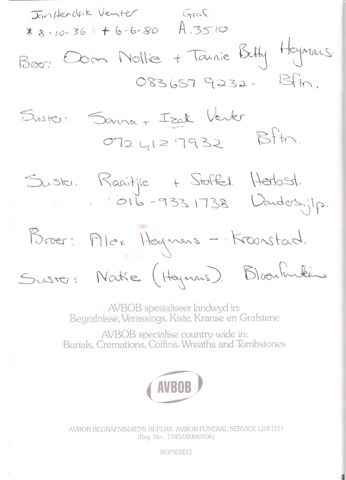 Jan Hendrik Venter Graf
* 8-10-36 + 6-6-80 A.3510
Broer: Oom Nollie + Tannie Betty Heymans
083 657 9232. Bftn.
Suster: Sanna + Izak Venter
072 412 7932 Bftn.
Suster: Raaitjie + Stoffel Herbst.
016-9331738
Broer: Alex Heymans - Kroonstad.
Suster: Natie (Heymans) Bloemfontein
AVBOB spesialiseer landwyd in:
Begrafnisse, Verassings, Kiste, Kranse en Grafstene
AVBOB specialise country wide in:
Burials, Cremations, Coffins, Wreaths and Tombstones
AVBOB
AVBOB BEGRAFNISDIENS BEPERK AVBOB FUNERAL SERVICE LIMITED